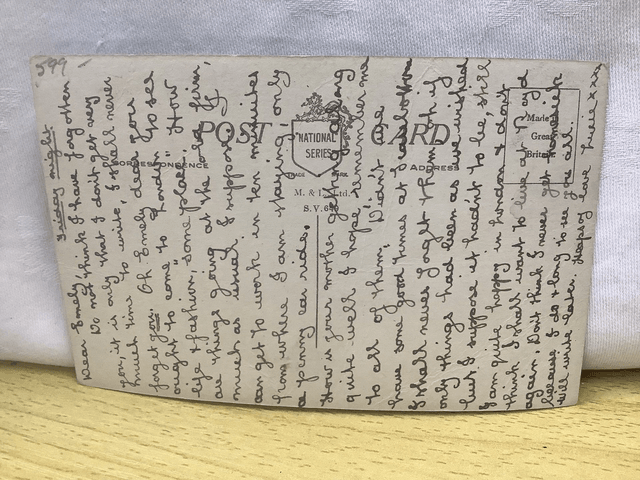 599
POST CARD
NATIONAL
SERIES
TRADE MARK
CORRESPONDENCE
ADDRESS
M. & L. Ltd.
S.V.
Made
Great
Britain
Friday night.
Dear Emely
Do not think I have forgotten
you, it is only that I don't get very
much time to write, I shall never
forget you. Oh Emely dear you
ought to come to "London" to see
life & fashion, some place. How
are things going at the old firm,
much as usual I suppose. I
can get to work in ten minutes
from where I am staying only
a penny car ride.
How is your mother getting along
quite well I hope, remember me
to all of them, Didn't we
have some good times at
I shall never forget them, if
only things had been as we wished
but I suppose it hadn't to be, still
I am quite happy in London & don't
think I shall want to live at
again, Don't think I never get homesick
because I do & long to see you all.
will write later. Heaps of love Lizzie xxx